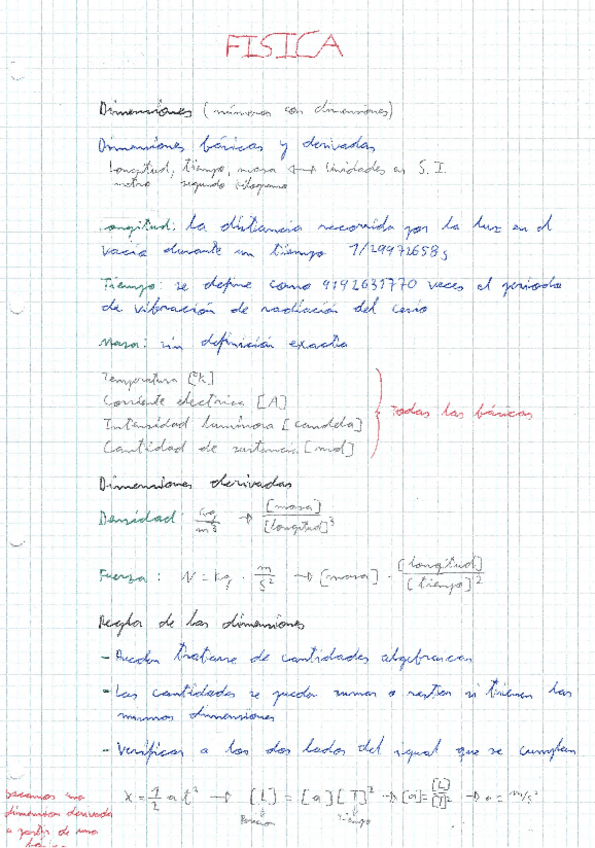 FISICA
Dimensiones (números con dimensiones)
Dimensiones básicas y derivadas
Longitud, tiempo, masa ↔ Unidades en S.I.
metro segundo kilogramo
Longitud: La distancia recorrida por la luz en el
vacío durante un tiempo 1/29972658 s
Tiempo: se define como 9192631770 veces el periodo
de vibración de radiación del cesio
Masa: sin definición exacta
Temperatura [°K]
Corriente electrica [A]
Intensidad luminosa [candela]
Cantidad de sustancia [mol]
Todas las básicas
Dimensiones derivadas
Densidad: kg/m³ → [masa]/[longitud]³
Fuerza: N = kg · m/s² → [masa] · [longitud]/[tiempo]²
Regla de las dimensiones
- Pueden tratarse de cantidades algebraicas
- Las cantidades se pueden sumar o restar si tienen las
mismas dimensiones
- Verificar a los dos lados del igual que se cumplan
x = 1/2 a t² → [L] = [a][T]² → [a] = [L]/[T]² → a = m/s²
Posicion Tiempo
sacamos una
dimension derivada
a partir de una
básica